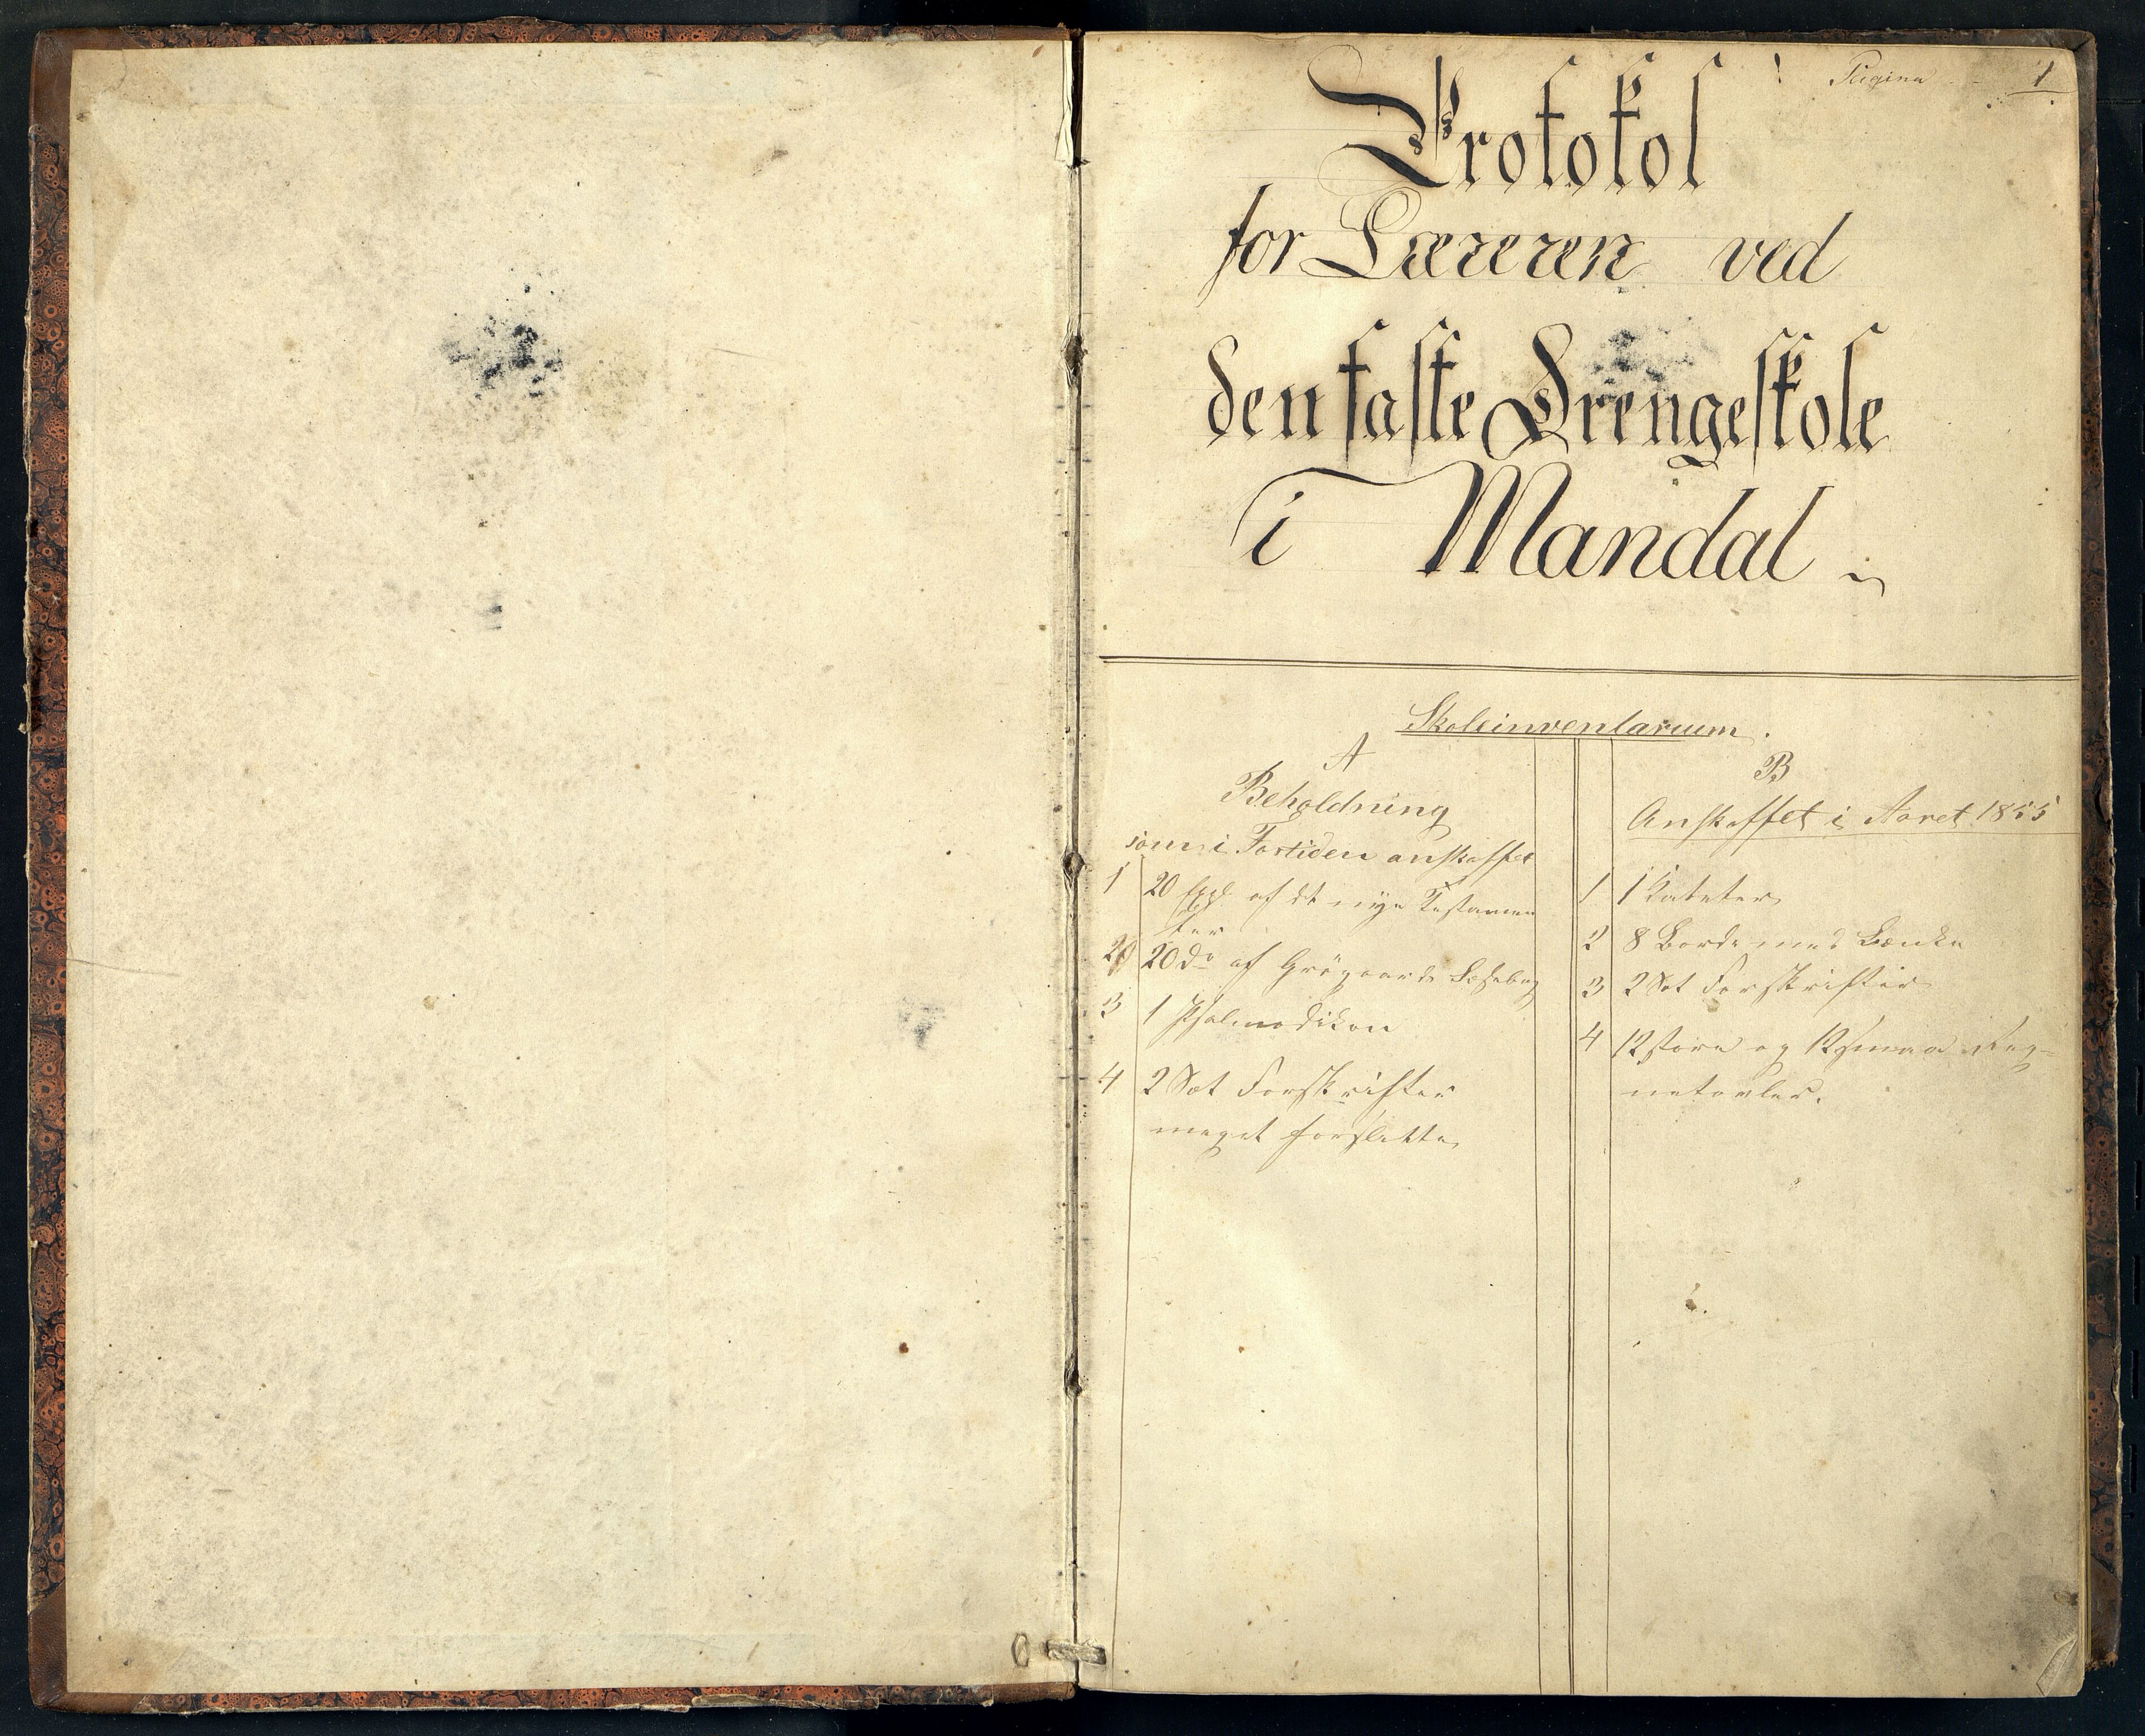 Pagina 1
Protokol
for Læreren ved
den faste Drengeskole
i Mandal
Skoleinventarium.
A
Beholdning
som i Fortiden anskaffet
1 20 Expl. af det nye Testamen
ter
2 20 Do af Grøgaards Læsebog
3 1 Psalmodikon
4 2 Sæt Forskrifter
meget forslidte
B
Anskaffet i Aaret 1855
1 1 Katheter
2 8 Borde med Bænke
3 2 Sæt Forskrifter
4 12 store og 12 smaa Reg-
netavler.